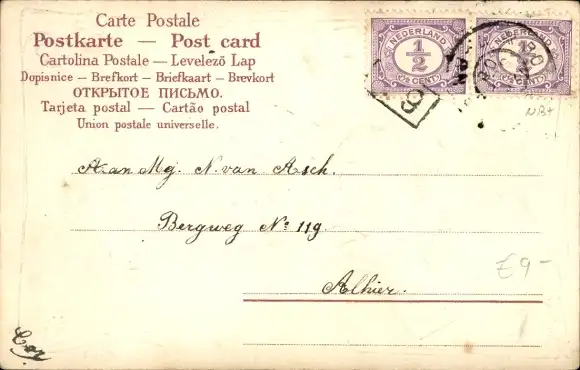 Carte Postale
Postkarte — Post card
Cartolina Postale — Levelező Lap
Dopisnice – Brefkort – Briefkaart – Brevkort
ОТКРЫТОЕ ПИСЬМО.
Tarjeta postal — Cartão postal
Union postale universelle.
NEDERLAND
1/2
1/2 CENT
NEDERLAND
1/2
CENT
9
NB+
Aan Mej. N. van Asch.
Bergweg No 119.
£9-
Alhier.